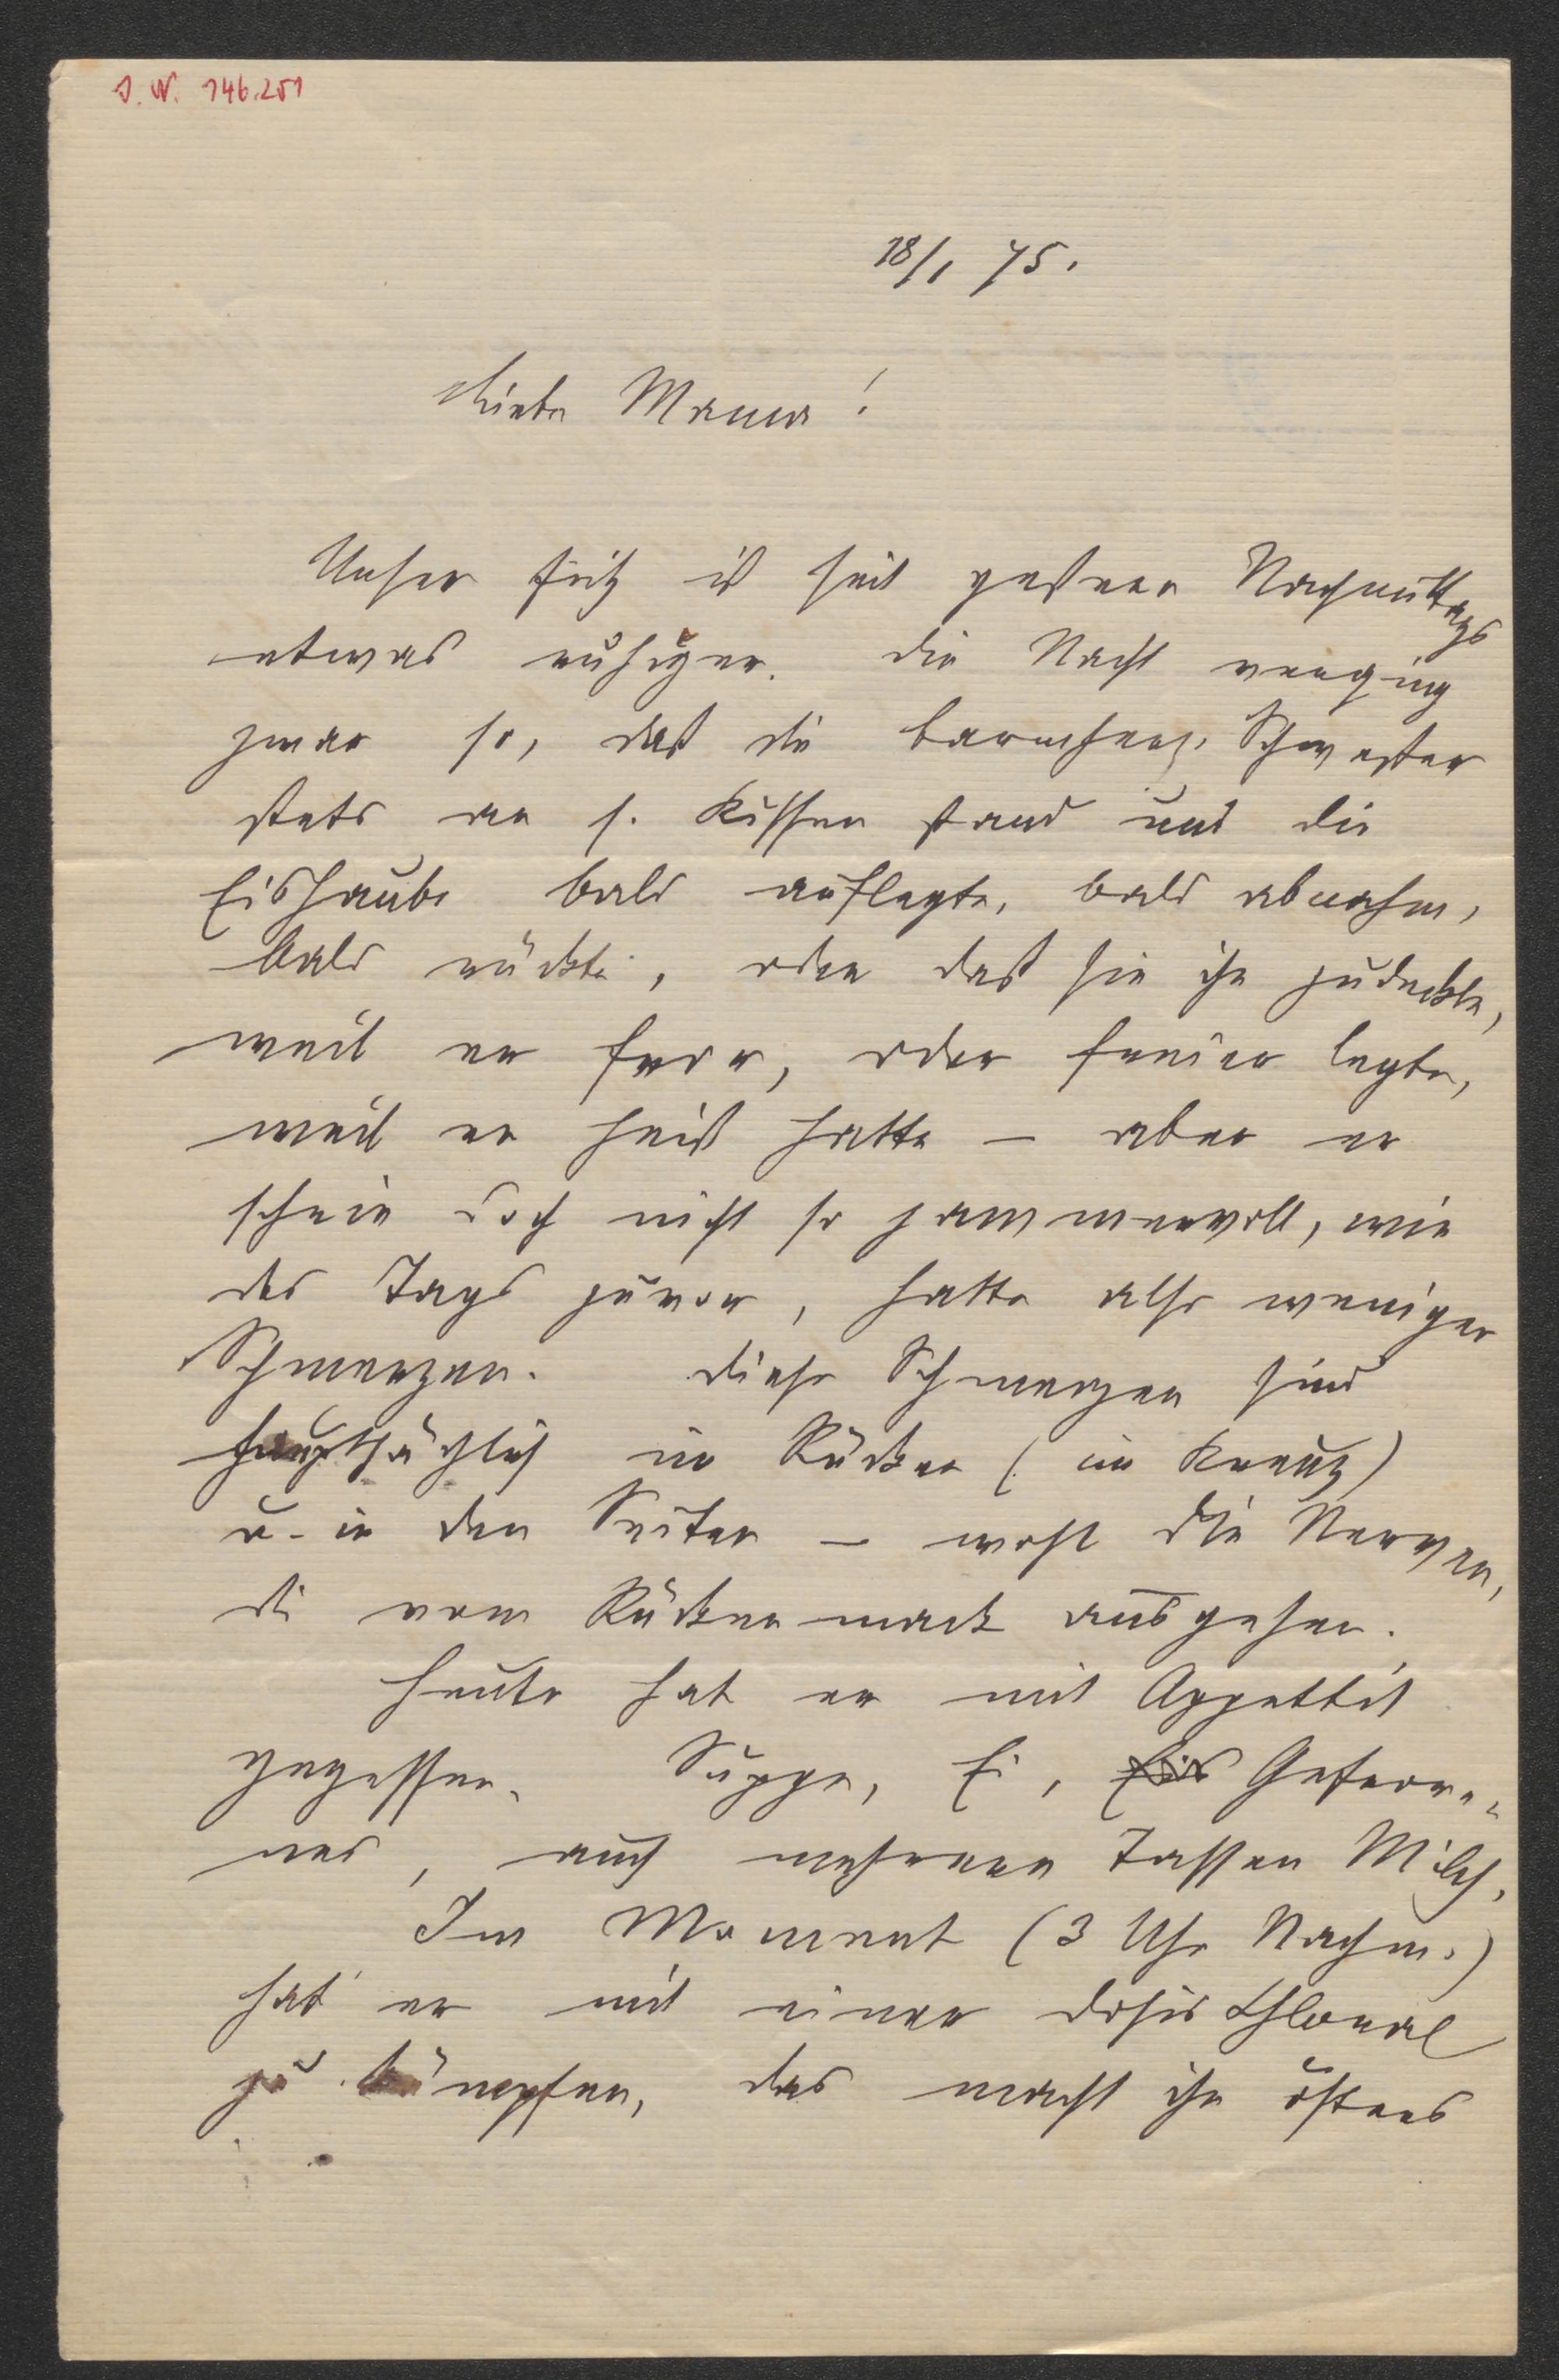 I. N. 146.251
18/1 75.
Liebe Mama!
Unser Fritz ist seit gestern Nachmittags
etwas ruhiger. Die Nacht verging
zwar so, daß die barmherz. Schwester
stets an s. Kissen stand und die
Eishaube bald auflegte, bald abnahm,
bald rückte, oder daß sie ihn zudeckte,
weil er fror, oder freier legte,
weil er heiß hatte – aber er
schrie doch nicht so jammervoll, wie
des Tags zuvor, hatte also weniger
Schmerzen. Diese Schmerzen sind
hauptsächlich im Rücken (im Kreuz)
u. in den Seiten – wohl die Nerven,
die vom Rückenmark ausgehen.
Heute hat er mit Appettit
gegessen. Suppe, Ei, Eis Gefrore-
nes, auch mehrere Tassen Milch.
Im Moment (3 Uhr Nachm.)
hat er mit einer Dosis Chloral
zu kämpfen, das macht ihn öfters